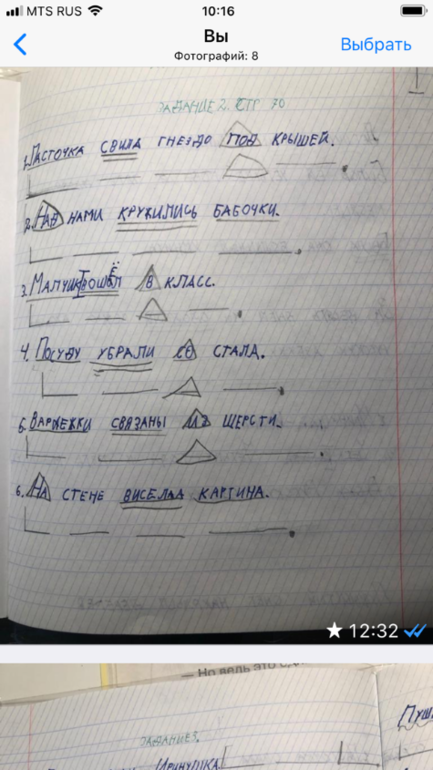 MTS RUS 10:16
Вы
Фотографий: 8
Выбрать
ЗАДАНИЕ 2. СТР 70
1. ЛАСТОЧКА СВИЛА ГНЕЗДО ПОД КРЫШЕЙ.
2. НАД НАМИ КРУЖИЛИСЬ БАБОЧКИ.
3. МАЛЧИК ПОШЁЛ В КЛАСС.
4. ПОСУДУ УБРАЛИ СО СТАЛА.
5. ВАРЖЕЖКИ СВЯЗАНЫ ИЗ ШЕРСТИ.
6. НА СТЕНЕ ВИСЕЛАД КАРТИНА.
★ 12:32
— Но ведь это
ЗАДАНИЕ 3.
ИРИНУШКА
ПУШ